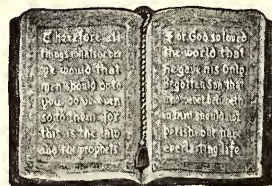 Therefore all
things whatsoever
ye would that
men should do to
you, do ye even
so to them: for
this is the law
and the prophets
For God so loved
the world that
he gave his only
begotten Son that
believeth
in him should not
perish but have
everlasting life